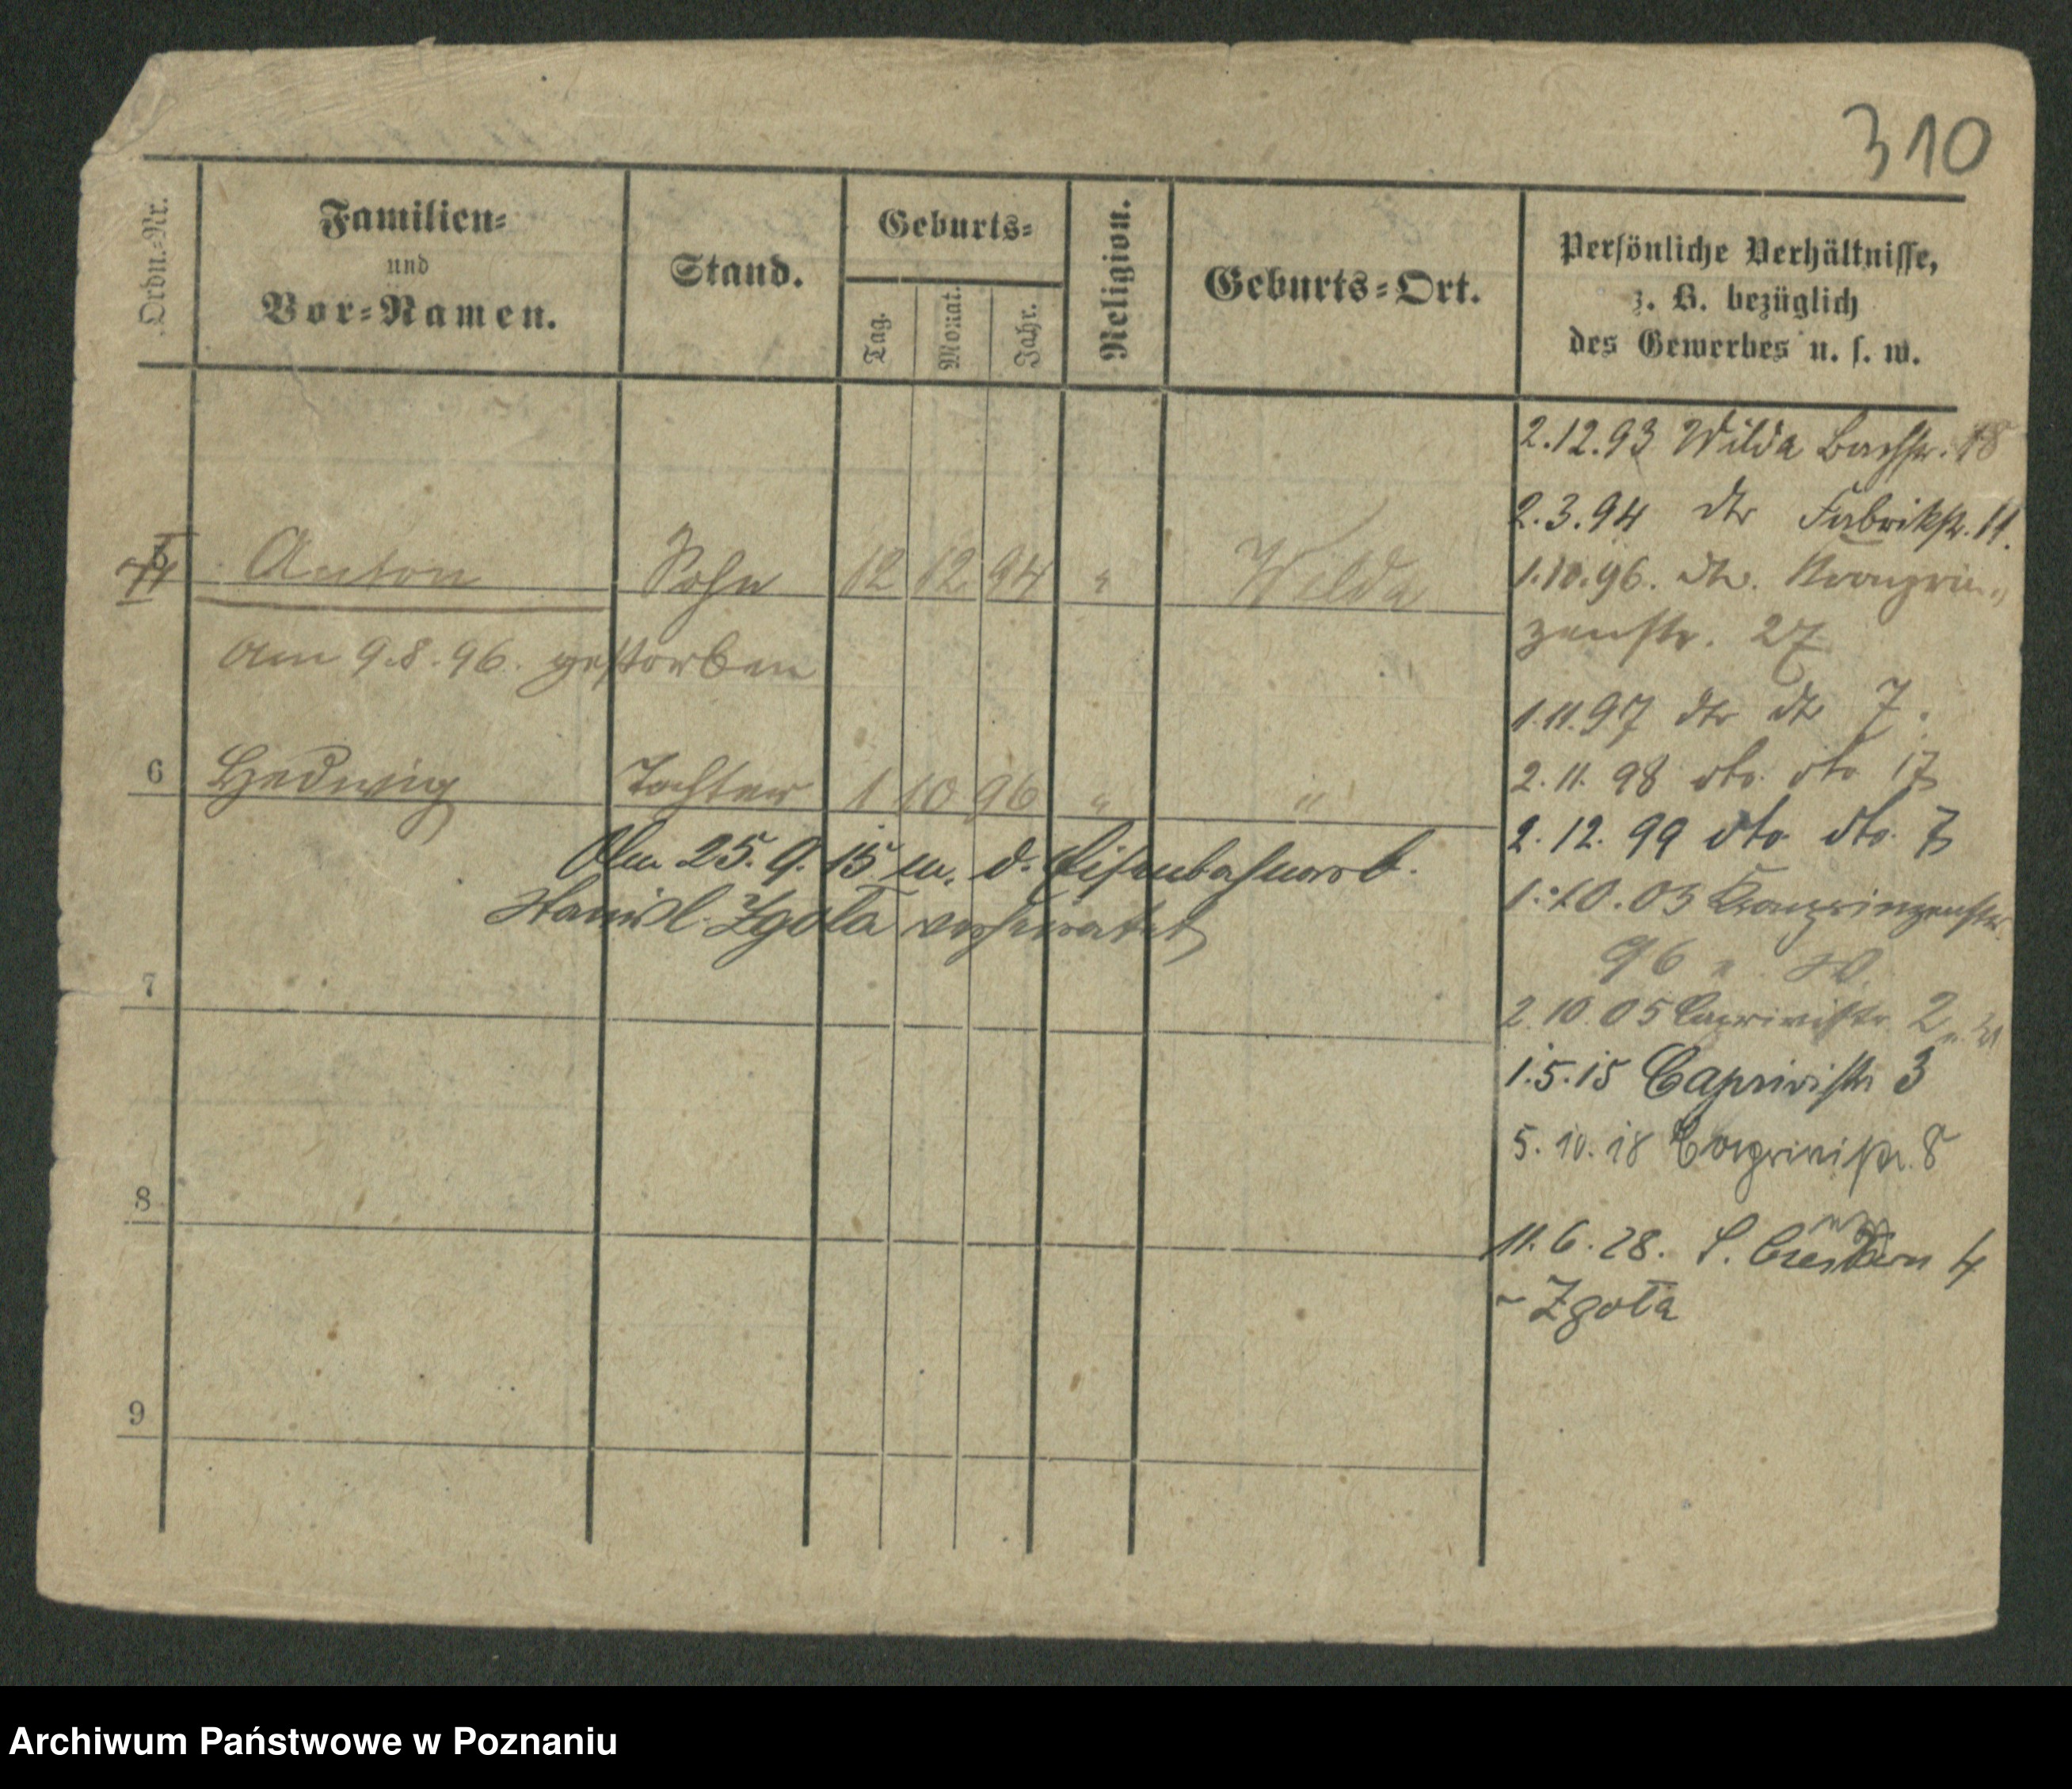 310
Ordn.-Nr.
Familien-
und
Vor-Namen.
Stand.
Geburts-
Tag.
Monat.
Jahr.
Religion.
Geburts-Ort.
Persönliche Verhältnisse,
z. B. bezüglich
des Gewerbes u. s. w.
2.12.93 Wilda Bachstr. 18
2.3.94 dto Fabrikstr. 11.
Anton Sohn 12 12 94 " Wilda
1.10.96. dto. Kronprin-
zenstr. 27
am 9.8.96. gestorben
1.11.97 dto dto 7.
6 Hedwig Tochter 1 10 96 " "
2.11.98 dto. dto 17
2.12.99 dto dto. 7
Am 25.9.15 m. d. Eisenbahnarb.
Stanisl. Zgoła verheiratet
1.10.03 Kronprinzenstr.
96 W.
2.10.05 Caprivistr 2
1.5.15 Caprivistr 3
5.10.18 Caprivistr. 8
7
8
11.6.28. 4
- Zgoła
9
Archiwum Państwowe w Poznaniu